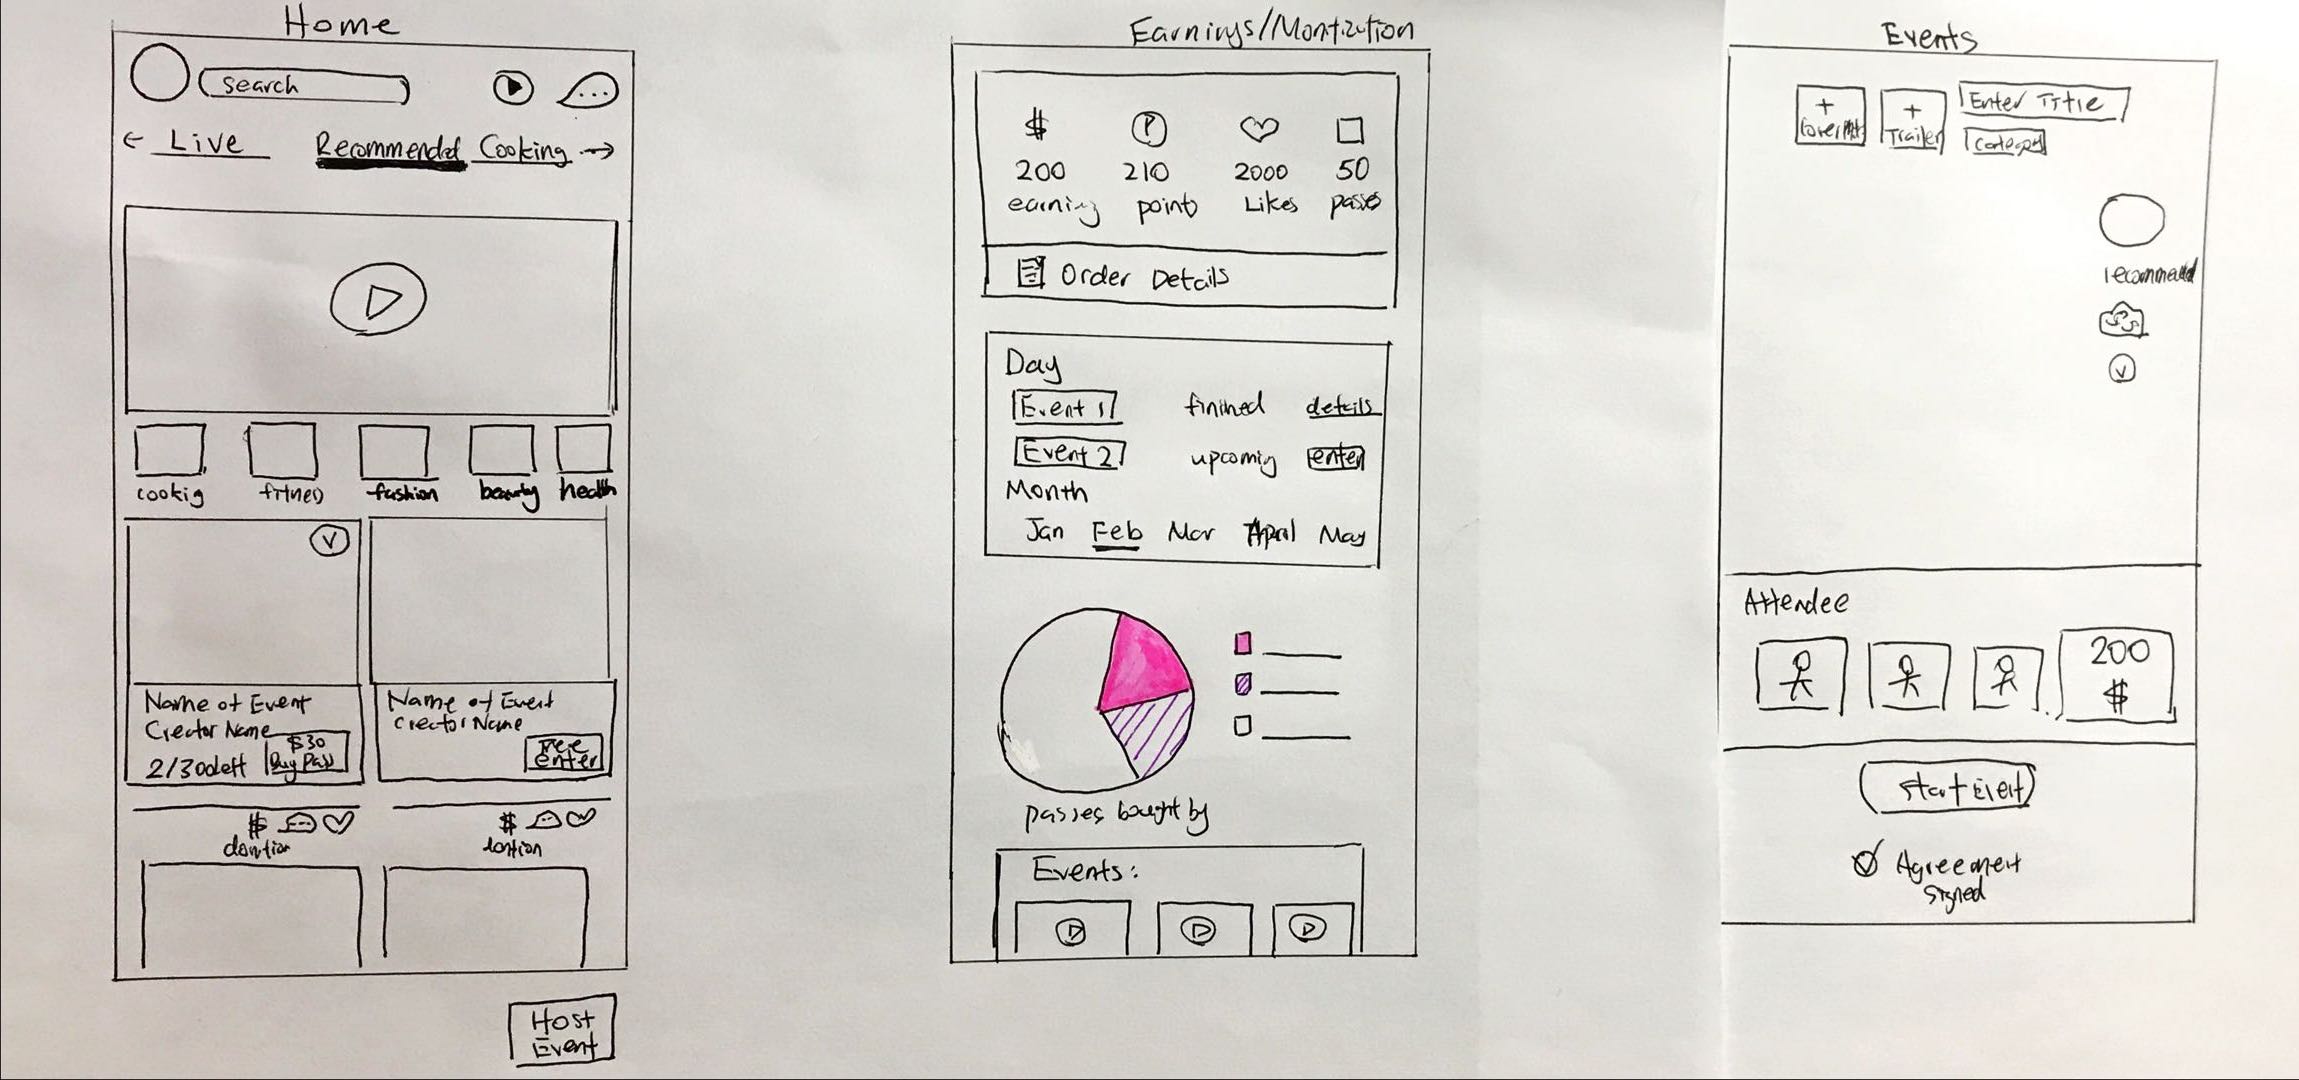 Home
search
← Live
Recommended
Cooking →
cookig
fitnes
fashion
beauty
health
V
Name of Event
Creator Name
2/30 left
$30
Buy Pass
Name of Event
Creator Name
Free
enter
$
dontion
$
dontion
Host
Event
Earnings/Montization
$
P
200
210
2000
50
earning
points
Likes
passes
Order Details
Day
Event 1
finished
details
Event 2
upcoming
enter
Month
Jan
Feb
Mar
April
May
passes bought by
Events:
Events
+
+
Trailer
Enter Title
Category
recommended
V
Attendee
200
$
Start Event
Agreement
signed